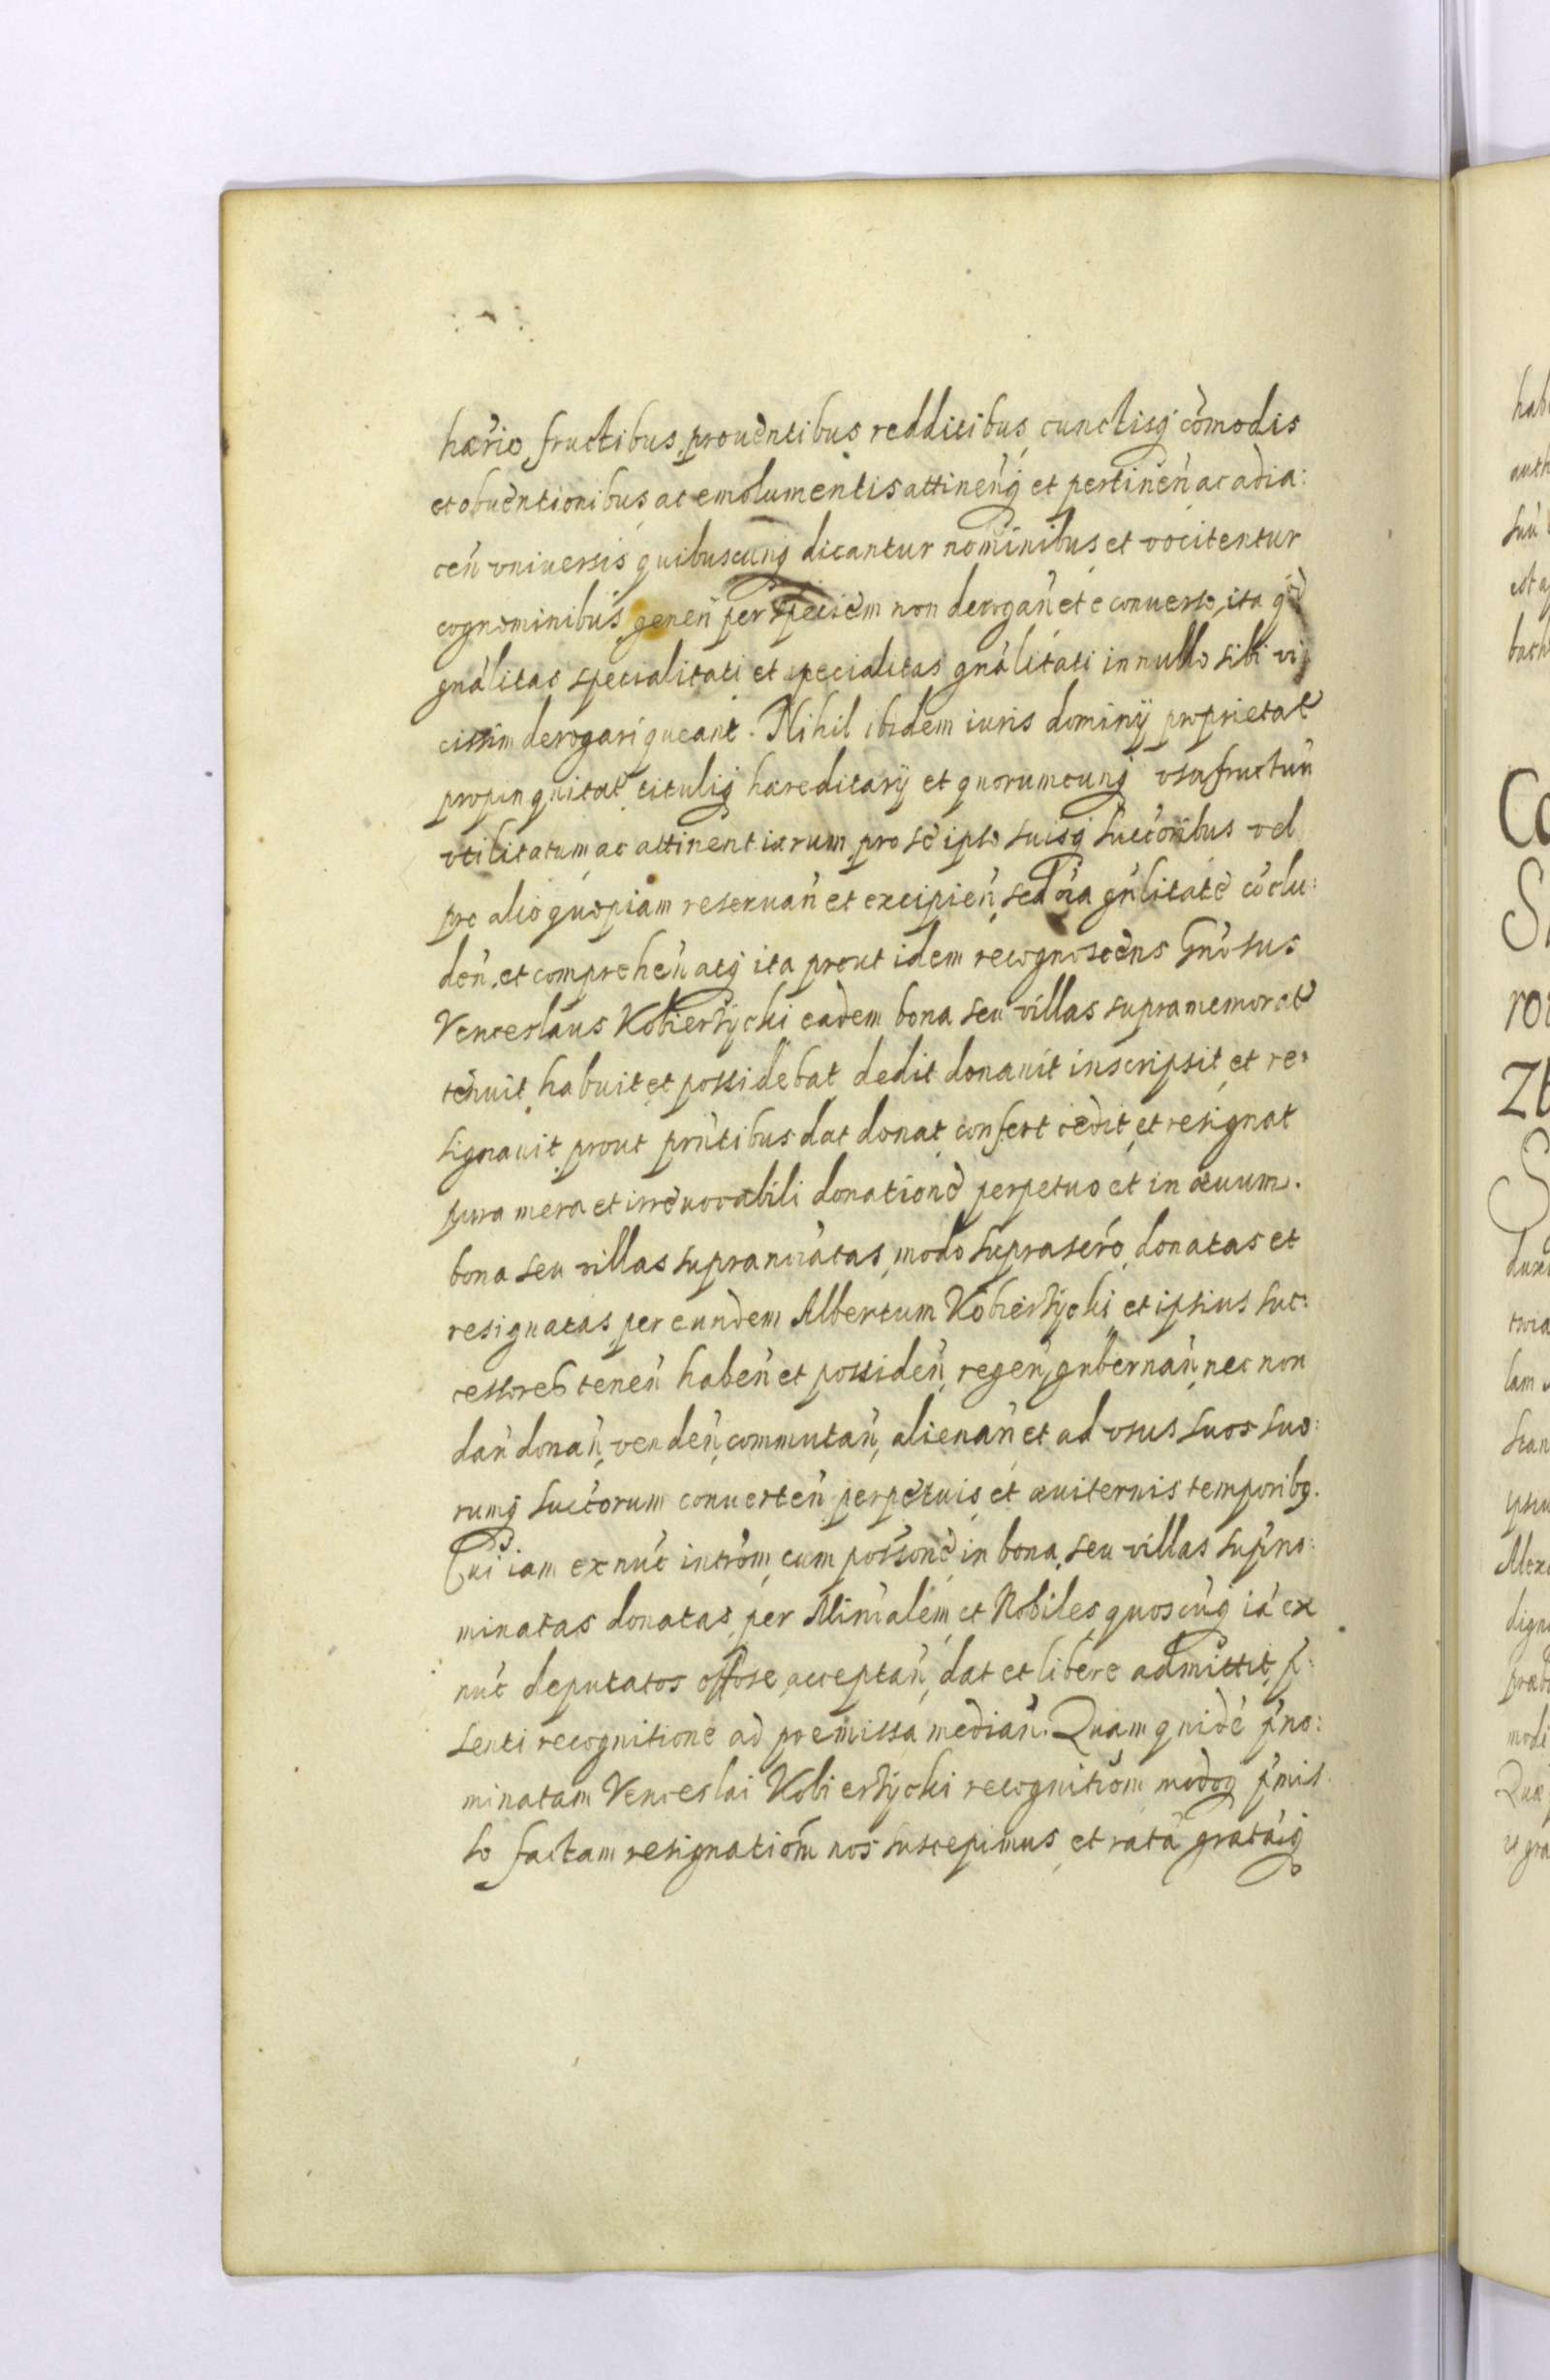 hǽrio, fructibus, prouentibus, redditibus, cunctisq́ cōmodis
et obuentionibus, ac emolumentis attineń q́ et pertineń ac adia:
ceń vniuersis, quibuscunq́ dicantur nominibus et vocitentur
cognominibus, geneń per speciem non derogań et e conuerso, ita qd́
gnálitas specialitati et specialitas gnálitati in nullo sibi vi,
cissim derogari queant. Nihil ibidem iuris dominÿ proprietat
propinquitat, tituliq́ hæreditarÿ et quorumcunq́ vsufructuú
vtilitatum ac attinentiarum, pro se ipso suisq́ succ̃oribus vel
pro alio quopiam reseruań et excipień, sed oı́a gńlitate cōclu:
deń. et compreheń atq́ ita prout idem recognoscens Gnósus
Venceslaus Kobierzÿcki eadem bona seu villas supramemorat
tenuit, habuit et possidebat, dedit donauit inscripsit, et re:
signauit, prout prńtibus dat donat, confert cedit et resignat
pura mera et irreuocabili donatione perpetuo et in æuum.
bona seu villas supranoı́atas, modo suprascró, donatas et
resignatas, per eundem Albertum Kobierzÿcki et ipsius suc:
cessores teneń habeń et possideń, regeń, gubernań, nec non
dań donań, vendeń, commutań, alienań et ad vsus suos suo:
rumq́ succ̃orum conuerteń, perpetuis et æuiternis temporibq.
Cui iam ex nuć intróm, cum possōne in bona, seu villas supno:
minatas donatas, per Minı́alem et Nobiles quoscuq́ iá ex
nuć deputatos offose, acceptań, dat et libere admittit, p:
senti recognitione ad præmissa mediań. Quam quide ṕno:
minatam Venceslai Kobierzÿcki recognitióm modoq ṕmis
so factam resignatióm nos suscepimus, et ratá gratáq́